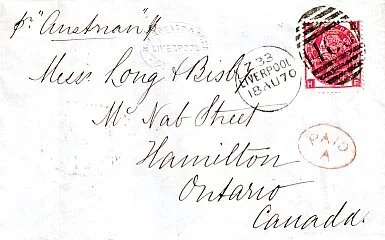 pr "Austrian"
LIVERPOOL
Z 33
LIVERPOOL
18 AU 70
Messrs Long & Bisby
McNab Street
Hamilton
PAID
A
Ontario
Canada